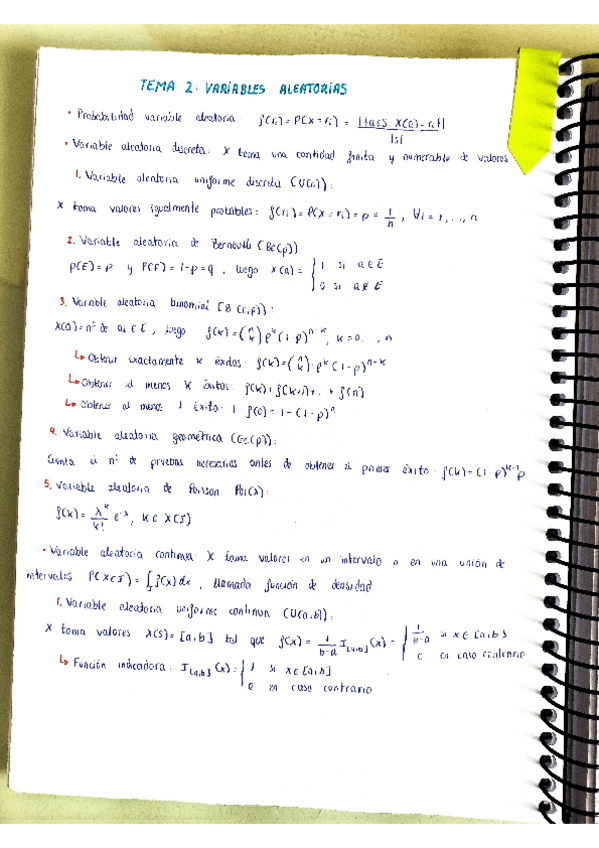 TEMA 2: VARIABLES ALEATORIAS
• Probabilidad variable aleatoria: f(ri) = P(X = ri) = |{a∈S X(a) = ri}| / |S|
• Variable aleatoria discreta: X toma una cantidad finita y numerable de valores
1. Variable aleatoria uniforme discreta (U(n)):
X toma valores igualmente probables: f(ri) = P(X = ri) = p = 1/n, ∀i = 1, ..., n
2. Variable aleatoria de Bernoulli (Be(p))
P(E) = p y P(F) = 1-p = q, luego X(a) = { 1 si a ∈ E
0 si a ∉ E
3. Variable aleatoria binomial (B(n,p)):
X(a) = nº de ai ∈ E, luego f(k) = (n k) p^k (1-p)^n-k, k = 0, , n
↳ Obtener exactamente k éxitos: f(k) = (n k) · p^k (1-p)^n-k
↳ Obtener al menos k éxitos: f(k) + f(k+1) + .. + f(n)
↳ Obtener al menos 1 éxito: 1 - f(0) = 1 - (1-p)^n
4. Variable aleatoria geométrica (Ge(p)):
Cuenta el nº de pruebas necesarias antes de obtener el primer éxito: f(k) = (1-p)^k-1 p
5. Variable aleatoria de Poisson Poi(λ):
f(k) = λ^k / k! e^-λ, k ∈ X(S)
• Variable aleatoria continua: X toma valores en un intervalo o en una unión de
intervalos P(X∈J) = ∫J f(x) dx, llamada función de densidad
1. Variable aleatoria uniforme continua (U(a,b)):
X toma valores X(S) = [a,b] tal que f(x) = 1/b-a I[a,b](x) = { 1/b-a si x ∈ [a,b]
0 en caso contrario
↳ Función indicadora: I[a,b](x) = { 1 si x ∈ [a,b]
0 en caso contrario